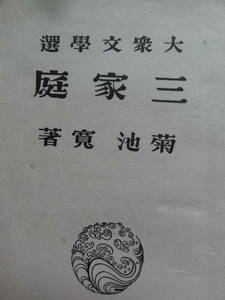 大衆文學選
三家庭
菊池寬著